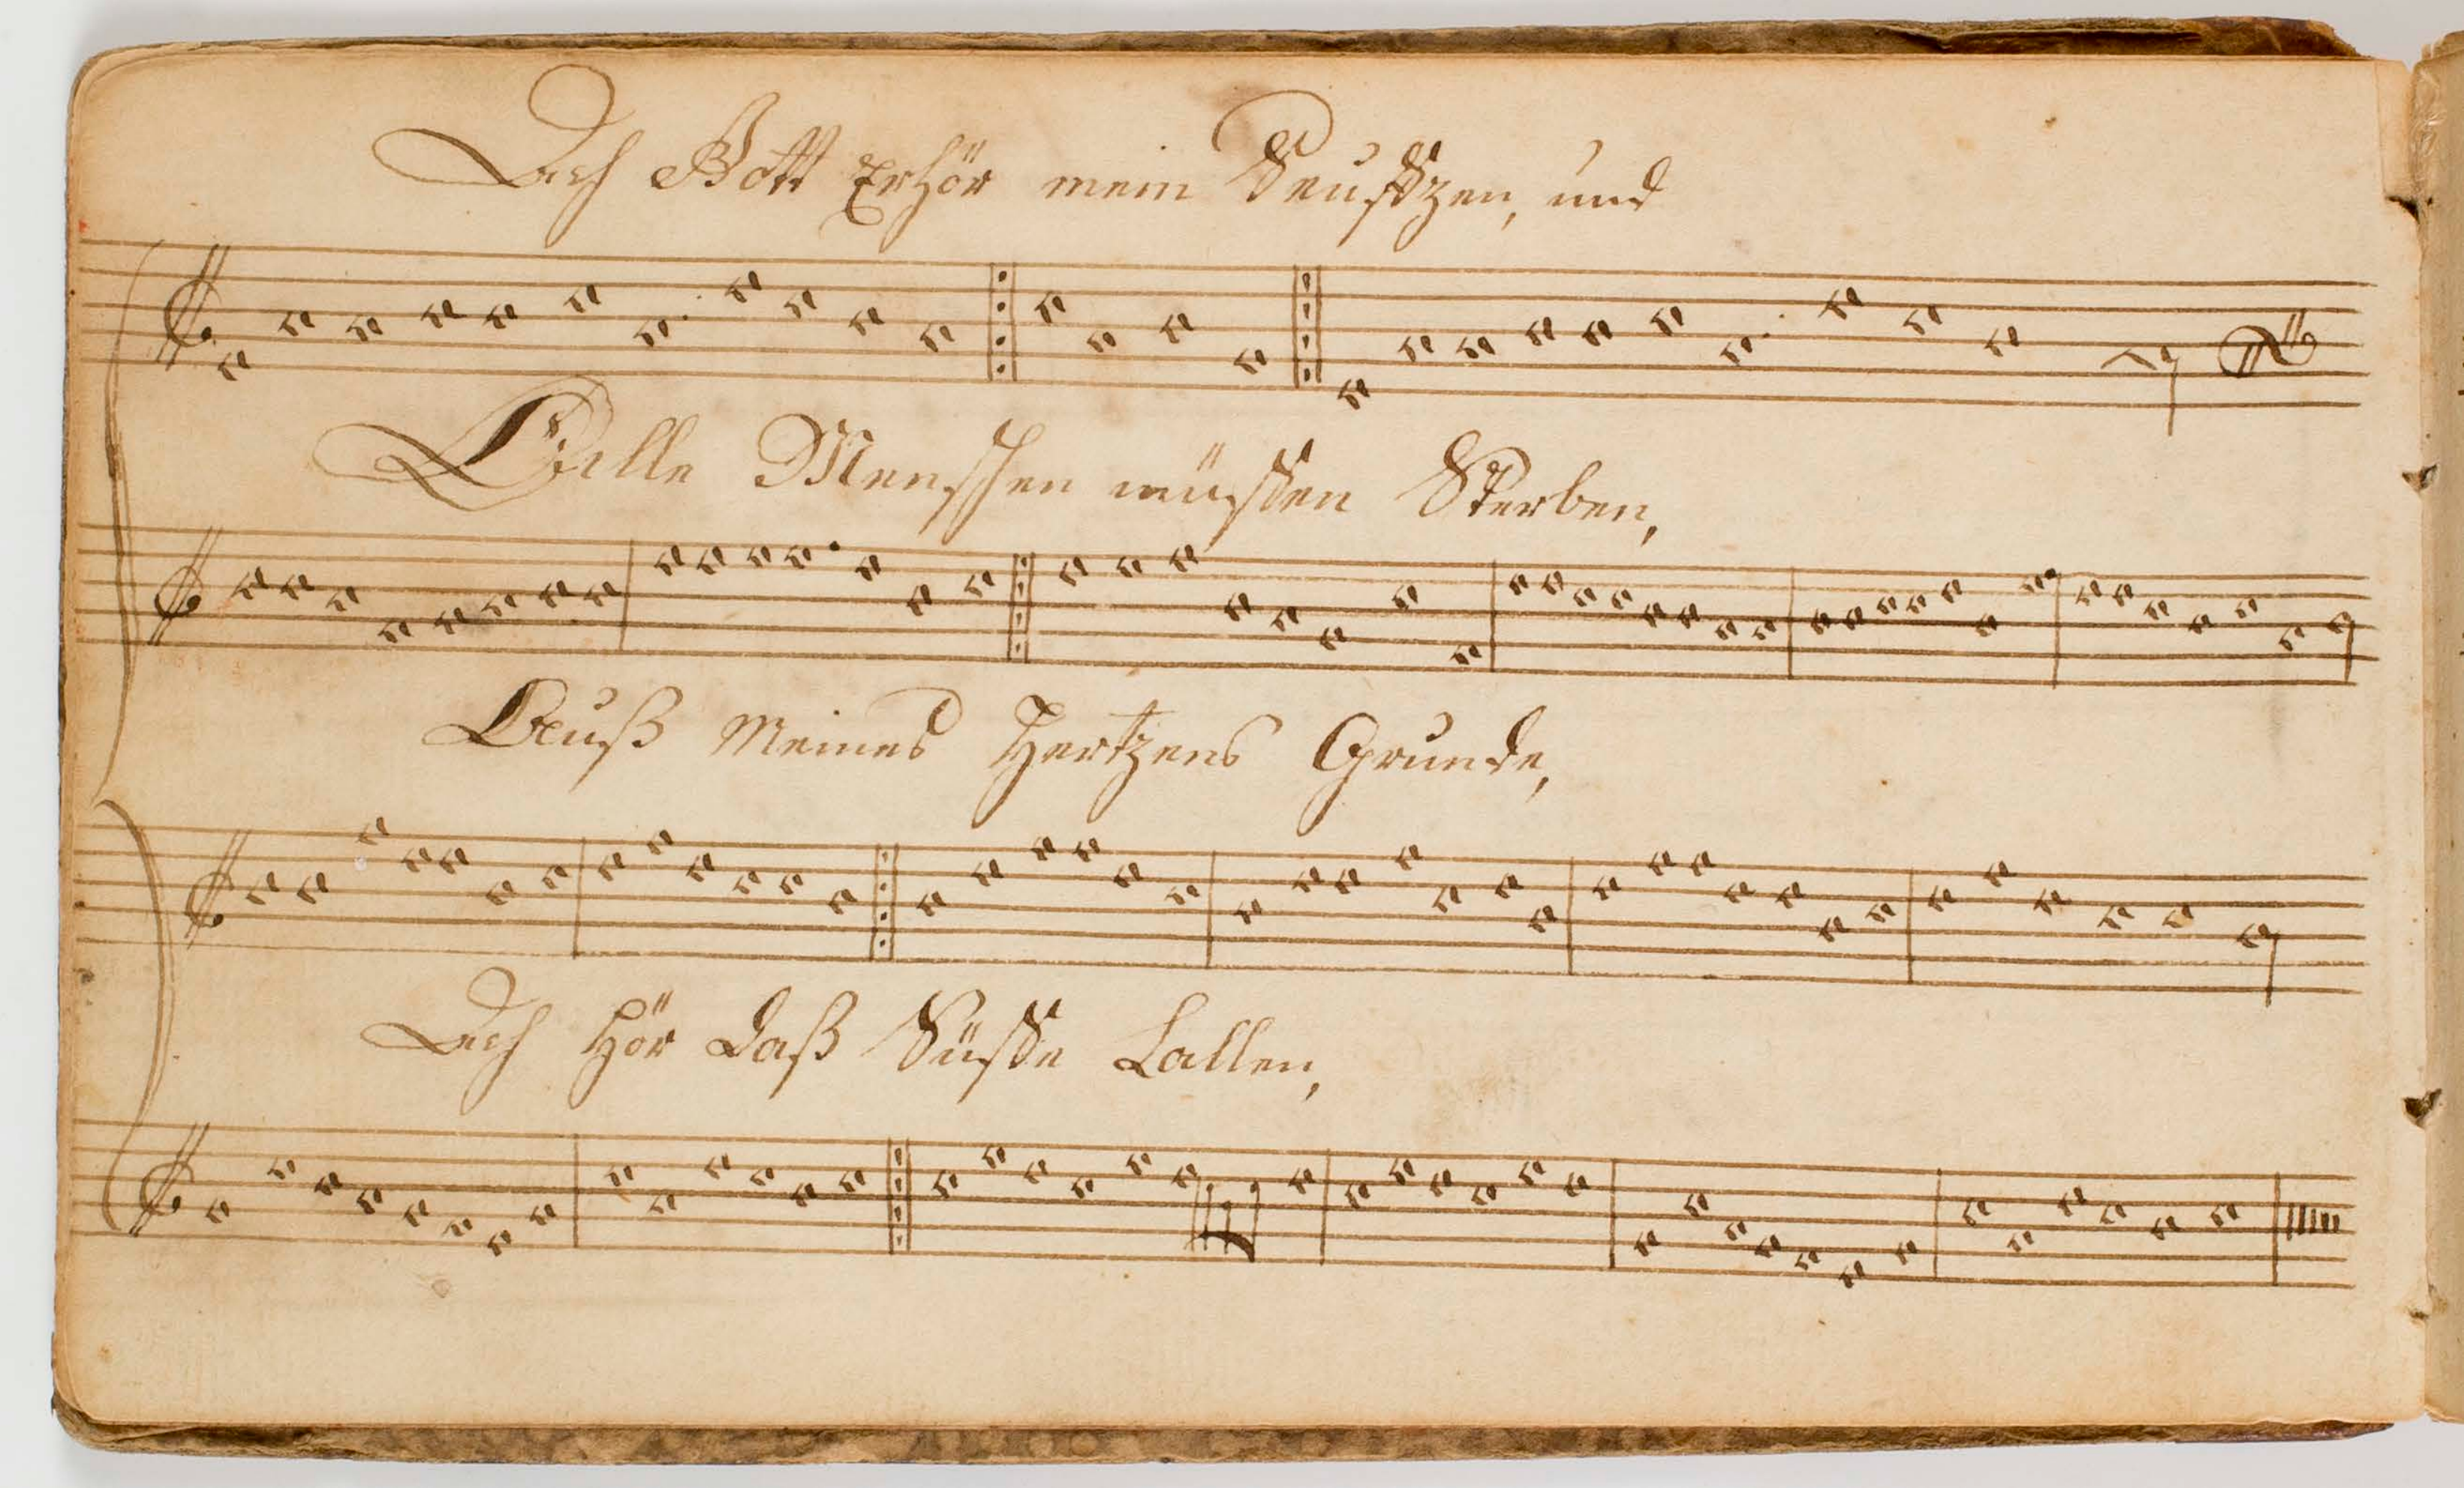 Ach Gott Erhör mein Seufftzen, und
Alle Menschen müssen Sterben,
Auß Meines Hertzens Grunde,
Ach hör daß Süsse Lallen,